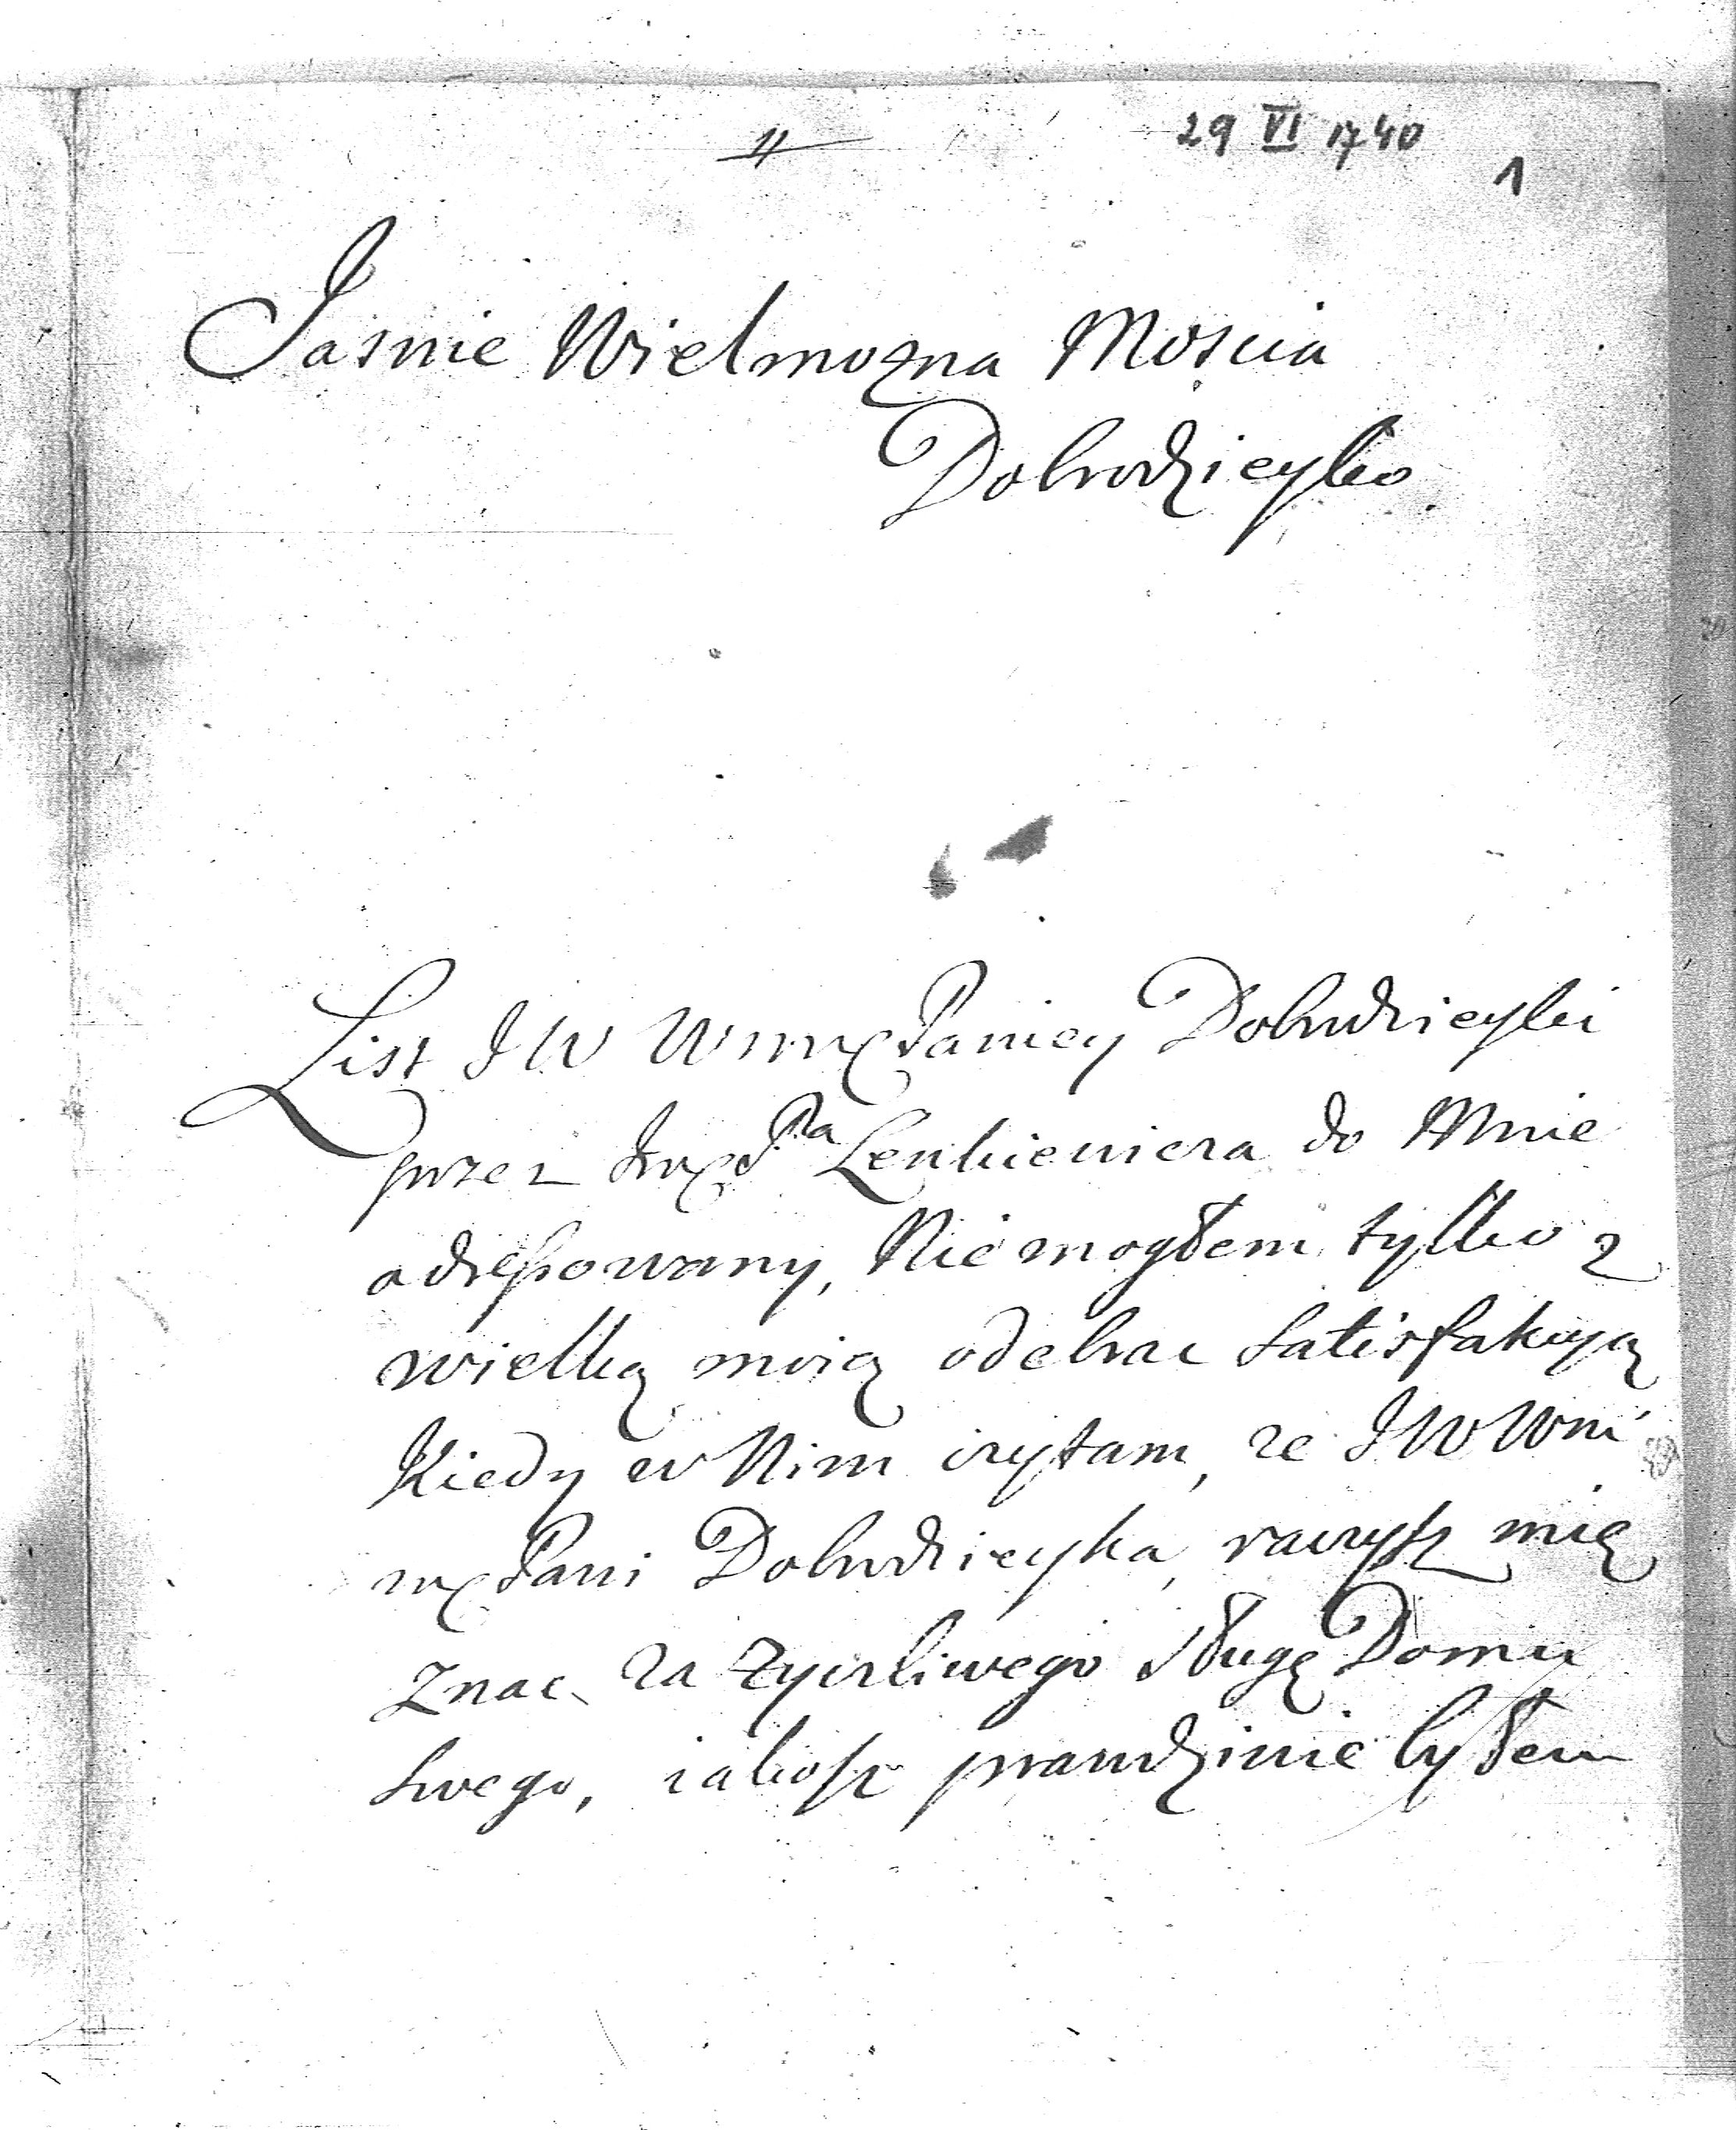 29 VI 1740
1
Jasnie Wielmozna Moscia
Dobrodzieyko
List JW WMMęPaniey Dobrodzieyki
przez JmęPPa Lenkieniera do Mnie
adressowany, Nie mogłem tylko z
wielką moią odebrac satisfakcyą
Kiedy w Nim czytam, ze JWWM
mę Pani Dobrodzieyka, raczysz mię
znac za zyczliwego sługę Domu
swego, iakosz prawdziwie byłem